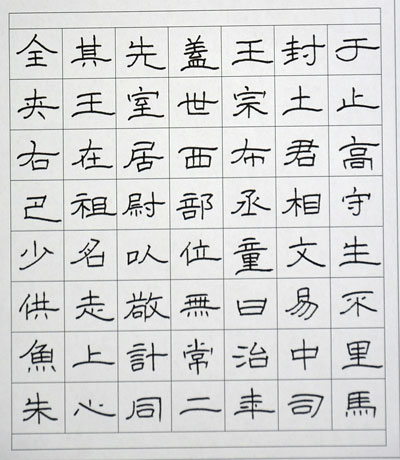 于止高守生不里馬
封土君相文易中司
王宗布丞童曰治年
蓋世西部位無常二
先室居尉以敬計同
其王在祖名走上心
全夾右己少供魚朱